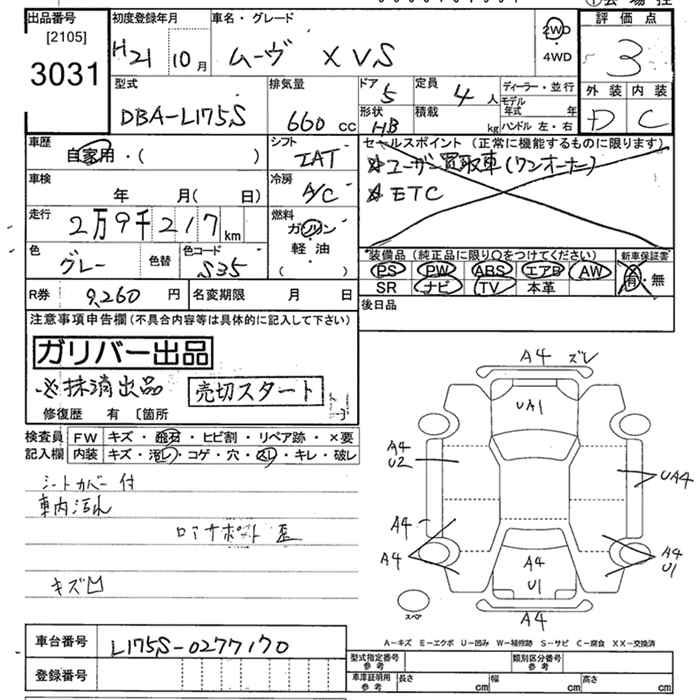 出品番号
[2105]
3031
初度登録年月
H21 10月
車名・グレード
ムーヴ XVS
2WD
・
4WD
評価点
3
外装 内装
D C
型式
DBA-L175S
排気量
660 cc
ドア
5
形状
HB
定員
4 人
積載
kg
ディーラー・並行
モデル年式 年
ハンドル 左・右
車歴
自家用・( )
シフト
IAT
セールスポイント (正常に機能するものに限ります)
ユーザー買取車(ワンオーナー)
ETC
車検
年 月( 日)
冷房
A/C
走行
2万9千217km
燃料
ガソリン
・
軽油
( )
色
グレー
色替
色コード
S35
装備品 (純正品に限り○をつけてください)
PS PW ABS エアB AW
SR ナビ TV 本革
新車保証書
有・無
R券 9,260 円
名変期限 月 日
後日品
注意事項申告欄(不具合内容等は具体的に記入して下さい)
ガリバー出品
※抹消出品
売切スタート
修復歴 有 〔箇所
検査員記入欄
FW キズ・飛石・ヒビ割・リペア跡・×要
内装 キズ・汚レ・コゲ・穴・スレ・キレ・破レ
シートカバー付
車内汚れ
キズ凹
A4 ズレ
UA1
A4
U2
UA4
A4
A4
A4
U1
A4
U1
スペア
A4
A-キズ E-エクボ U-凹み W-補修跡 S-サビ C-腐食 XX-交換済
車台番号 L175S-0277170
登録番号
型式指定番号
参考
類別区分番号
参考
車庫証明用
参考
長さ cm
幅 cm
高さ cm